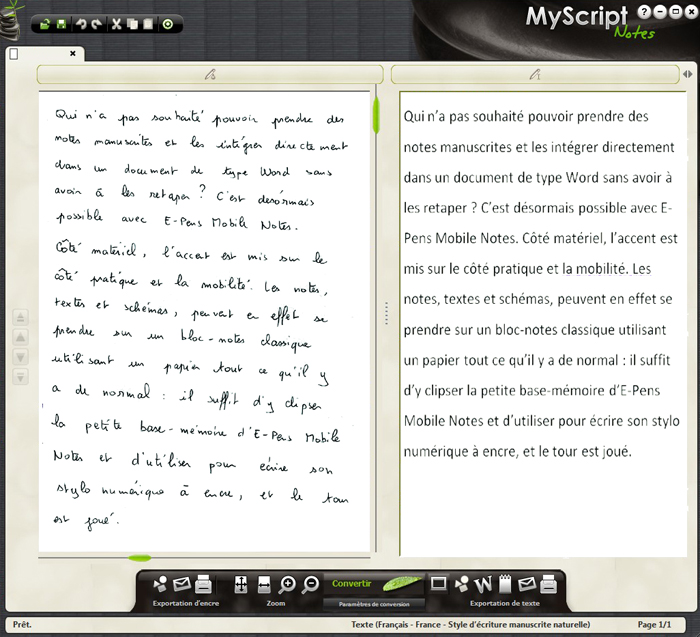 MyScript
Notes
Qui n'a pas souhaité pouvoir prendre des
notes manuscrites et les intégrer directement
dans un document de type Word sans
avoir à les retaper ? C'est désormais
possible avec E-Pens Mobile Notes.
Côté matériel, l'accent est mis sur le
côté pratique et la mobilité. Les notes,
textes et schémas, peuvent en effet se
prendre sur un bloc-notes classique
utilisant un papier tout ce qu'il y
a de normal : il suffit d'y clipser
la petite base-mémoire d'E-Pens Mobile
Notes et d'utiliser pour écrire son
stylo numérique à encre, et le tour
est joué.
Qui n'a pas souhaité pouvoir prendre des
notes manuscrites et les intégrer directement
dans un document de type Word sans avoir à
les retaper ? C'est désormais possible avec E-
Pens Mobile Notes. Côté matériel, l'accent est
mis sur le côté pratique et la mobilité. Les
notes, textes et schémas, peuvent en effet se
prendre sur un bloc-notes classique utilisant
un papier tout ce qu'il y a de normal : il suffit
d'y clipser la petite base-mémoire d'E-Pens
Mobile Notes et d'utiliser pour écrire son stylo
numérique à encre, et le tour est joué.
Convertir
Exportation d'encre
Zoom
Paramètres de conversion
Exportation de texte
Prêt.
Texte (Français - France - Style d'écriture manuscrite naturelle)
Page 1/1